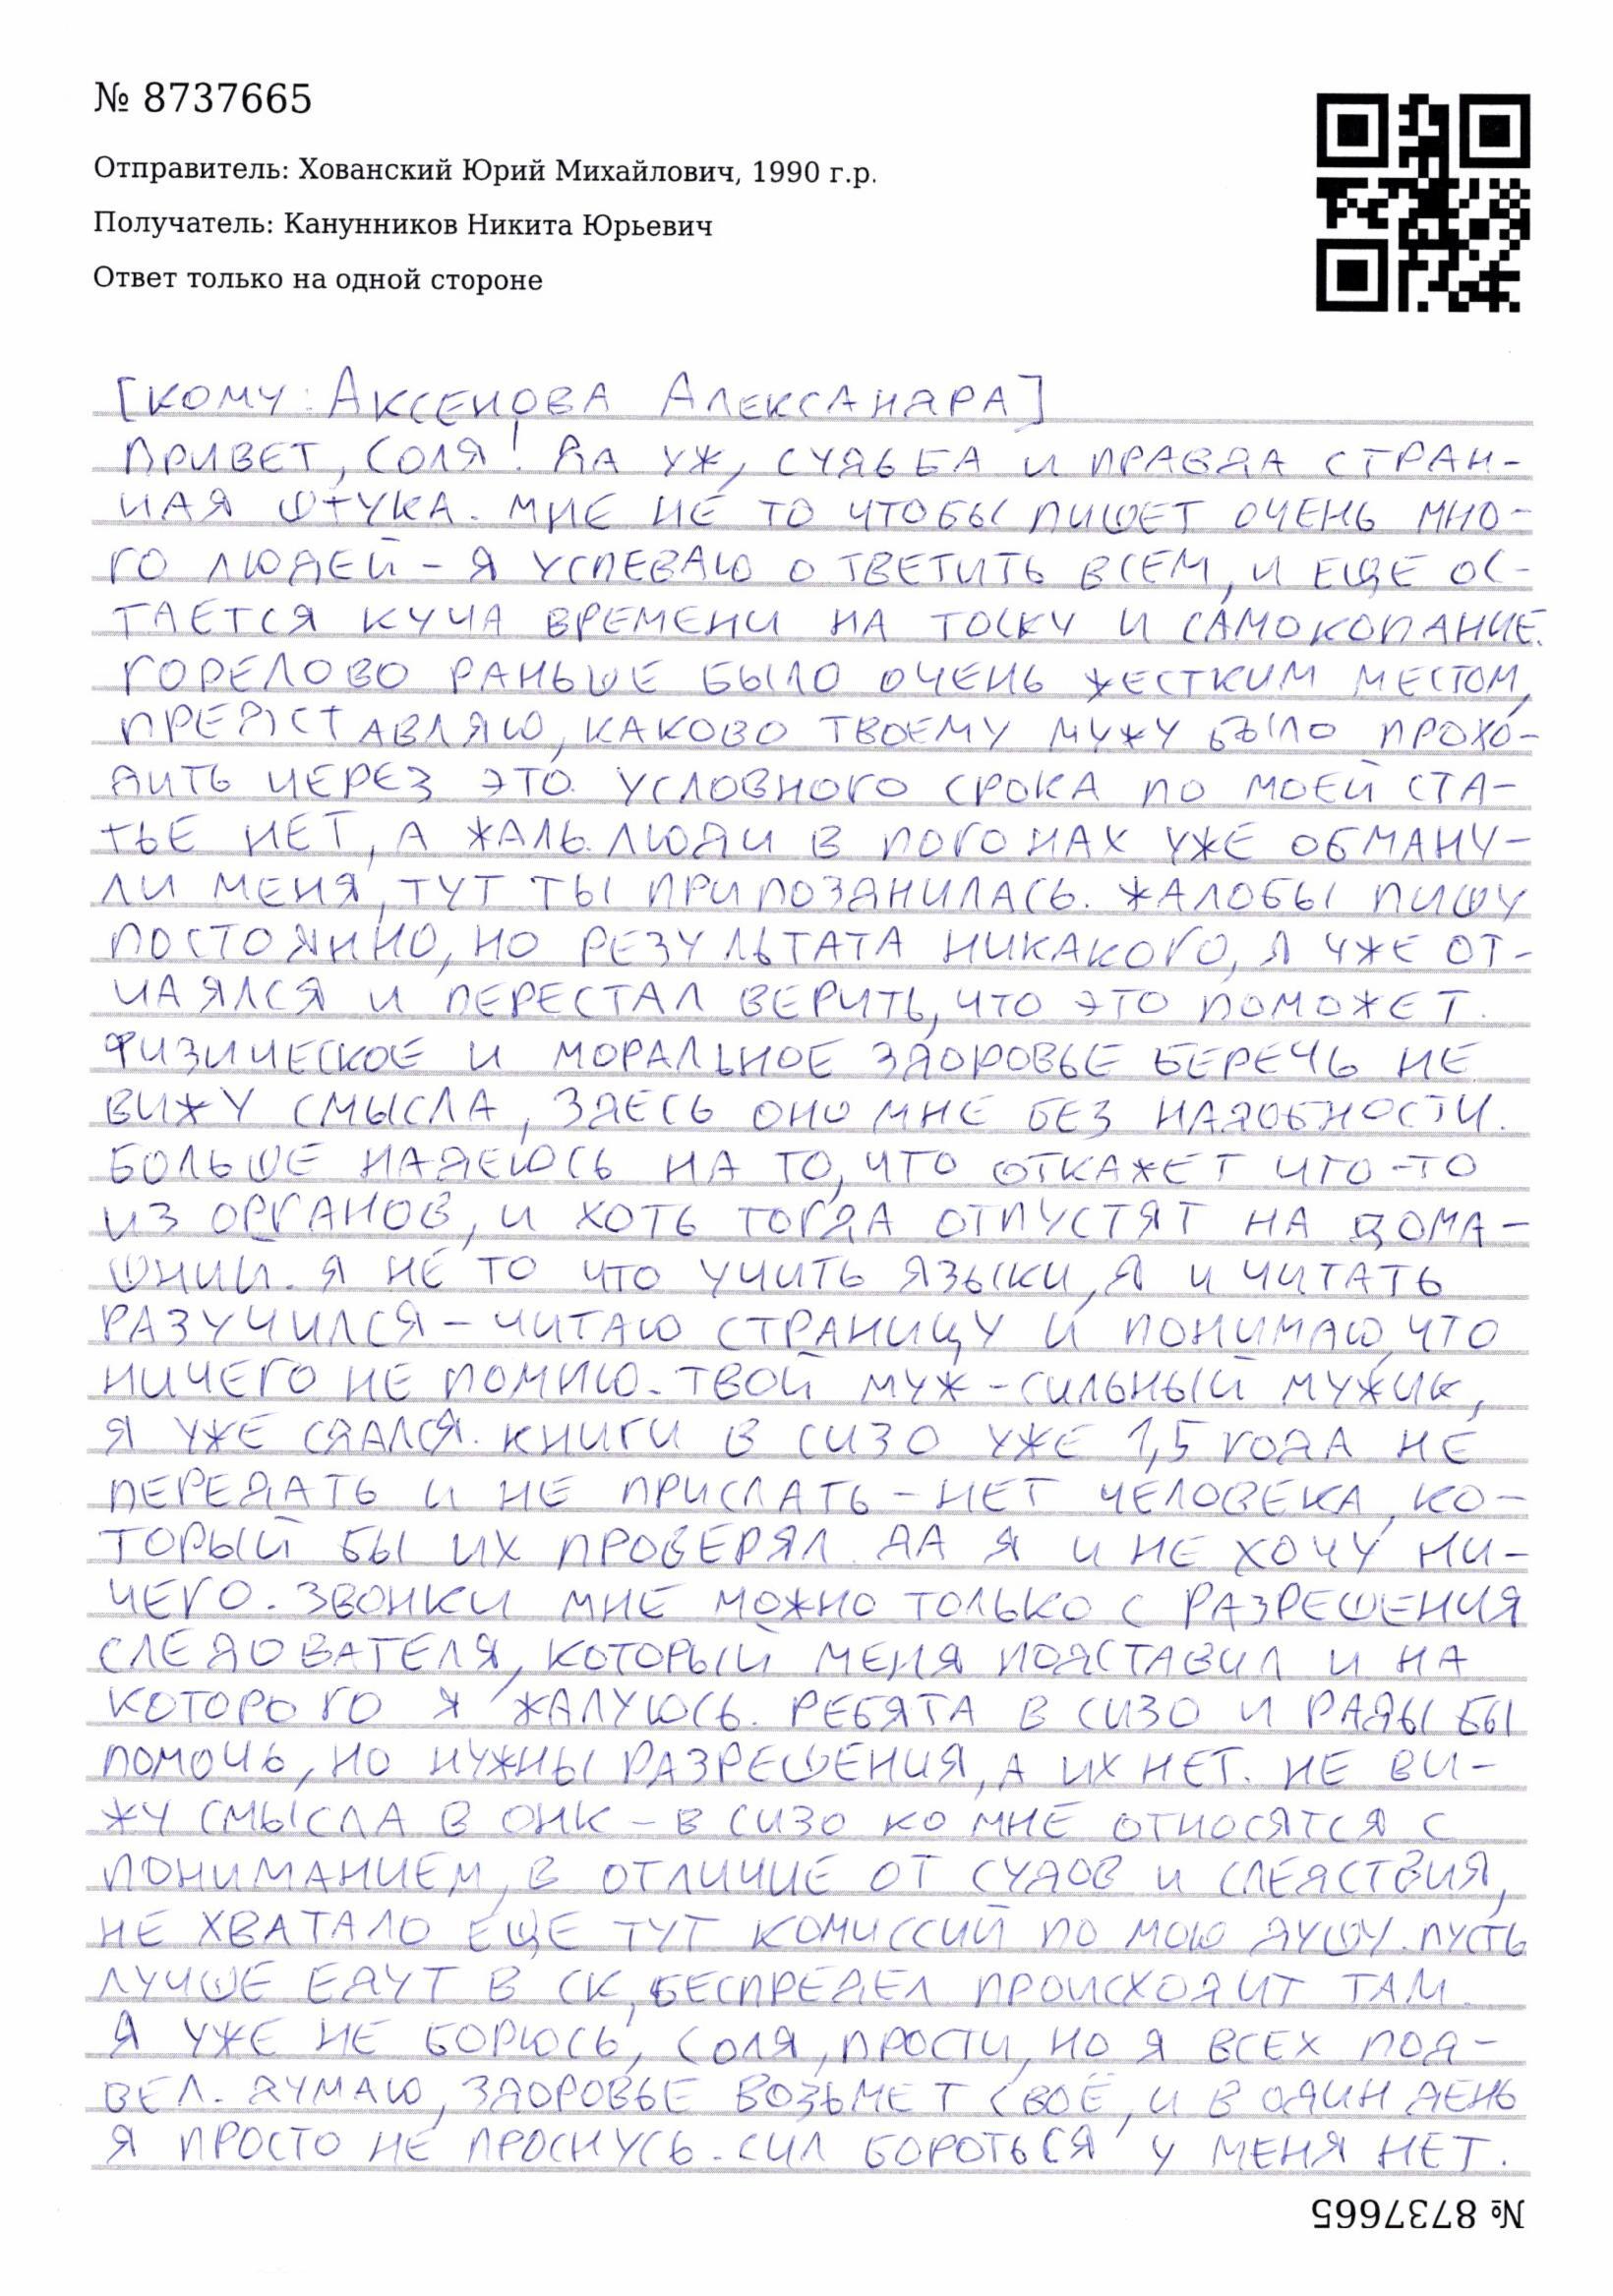 № 8737665
Отправитель: Хованский Юрий Михайлович, 1990 г.р.
Получатель: Канунников Никита Юрьевич
Ответ только на одной стороне
[КОМУ: АКСЕНОВА АЛЕКСАНДРА]
ПРИВЕТ, СОЛЯ! ДА УЖ, СУДЬБА И ПРАВДА СТРАН-
НАЯ ШТУКА. МНЕ НЕ ТО ЧТОБЫ ПИШЕТ ОЧЕНЬ МНО-
ГО ЛЮДЕЙ - Я УСПЕВАЮ ОТВЕТИТЬ ВСЕМ, И ЕЩЕ ОС-
ТАЕТСЯ КУЧА ВРЕМЕНИ НА ТОСКУ И САМОКОПАНИЕ.
ГОРЕЛОВО РАНЬШЕ БЫЛО ОЧЕНЬ ЖЕСТКИМ МЕСТОМ,
ПРЕДСТАВЛЯЮ, КАКОВО ТВОЕМУ МУЖУ БЫЛО ПРОХО-
ДИТЬ ЧЕРЕЗ ЭТО. УСЛОВНОГО СРОКА ПО МОЕЙ СТА-
ТЬЕ НЕТ, А ЖАЛЬ. ЛЮДИ В ПОГОНАХ УЖЕ ОБМАНУ-
ЛИ МЕНЯ, ТУТ ТЫ ПРИПОЗДНИЛАСЬ. ЖАЛОБЫ ПИШУ
ПОСТОЯННО, НО РЕЗУЛЬТАТА НИКАКОГО, Я УЖЕ ОТ-
ЧАЯЛСЯ И ПЕРЕСТАЛ ВЕРИТЬ, ЧТО ЭТО ПОМОЖЕТ.
ФИЗИЧЕСКОЕ И МОРАЛЬНОЕ ЗДОРОВЬЕ БЕРЕЧЬ НЕ
ВИЖУ СМЫСЛА, ЗДЕСЬ ОНО МНЕ БЕЗ НАДОБНОСТИ.
БОЛЬШЕ НАДЕЮСЬ НА ТО, ЧТО ОТКАЖЕТ ЧТО-ТО
ИЗ ОРГАНОВ, И ХОТЬ ТОГДА ОТПУСТЯТ НА ДОМА-
ШНИЙ. Я НЕ ТО ЧТО УЧИТЬ ЯЗЫКИ, Я И ЧИТАТЬ
РАЗУЧИЛСЯ - ЧИТАЮ СТРАНИЦУ И ПОНИМАЮ, ЧТО
НИЧЕГО НЕ ПОМНЮ. ТВОЙ МУЖ - СИЛЬНЫЙ МУЖИК,
Я УЖЕ СДАЛСЯ. КНИГИ В СИЗО УЖЕ 1,5 ГОДА НЕ
ПЕРЕДАТЬ И НЕ ПРИСЛАТЬ - НЕТ ЧЕЛОВЕКА, КО-
ТОРЫЙ БЫ ИХ ПРОВЕРЯЛ. ДА Я И НЕ ХОЧУ НИ-
ЧЕГО. ЗВОНКИ МНЕ МОЖНО ТОЛЬКО С РАЗРЕШЕНИЯ
СЛЕДОВАТЕЛЯ, КОТОРЫЙ МЕНЯ ПОДСТАВИЛ И НА
КОТОРОГО Я ЖАЛУЮСЬ. РЕБЯТА В СИЗО И РАДЫ БЫ
ПОМОЧЬ, НО НУЖНЫ РАЗРЕШЕНИЯ, А ИХ НЕТ. НЕ ВИ-
ЖУ СМЫСЛА В ОНК - В СИЗО КО МНЕ ОТНОСЯТСЯ С
ПОНИМАНИЕМ, В ОТЛИЧИЕ ОТ СУДОВ И СЛЕДСТВИЯ,
НЕ ХВАТАЛО ЕЩЕ ТУТ КОМИССИЙ ПО МОЮ ДУШУ. ПУСТЬ
ЛУЧШЕ ЕДУТ В СК, БЕСПРЕДЕЛ ПРОИСХОДИТ ТАМ.
Я УЖЕ НЕ БОРЮСЬ, СОЛЯ, ПРОСТИ, НО Я ВСЕХ ПОД-
ВЕЛ. ДУМАЮ, ЗДОРОВЬЕ ВОЗЬМЕТ СВОЁ, И В ОДИН ДЕНЬ
Я ПРОСТО НЕ ПРОСНУСЬ. СИЛ БОРОТЬСЯ У МЕНЯ НЕТ.
№ 8737665